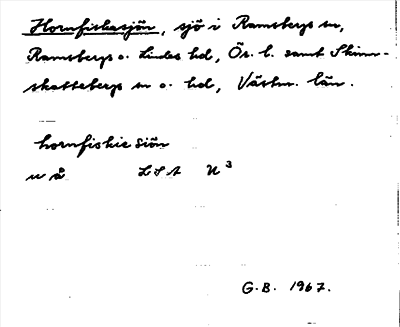 Hornfiskasjön, sjö i Ramsbergs sn,
Ramsbergs o. Lindes hd, Ör. l. samt Skinn-
skattebergs sn o. hd, Västm. län.
hornfiskie siön
u å LSA U3
G.B. 1967.